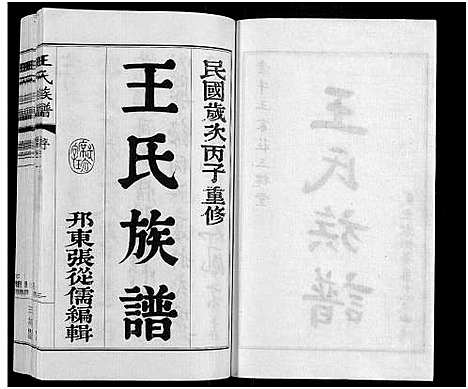 民國歲次丙子重修
王氏族譜
邦東張從儒編輯
王氏族譜
序
王氏族譜